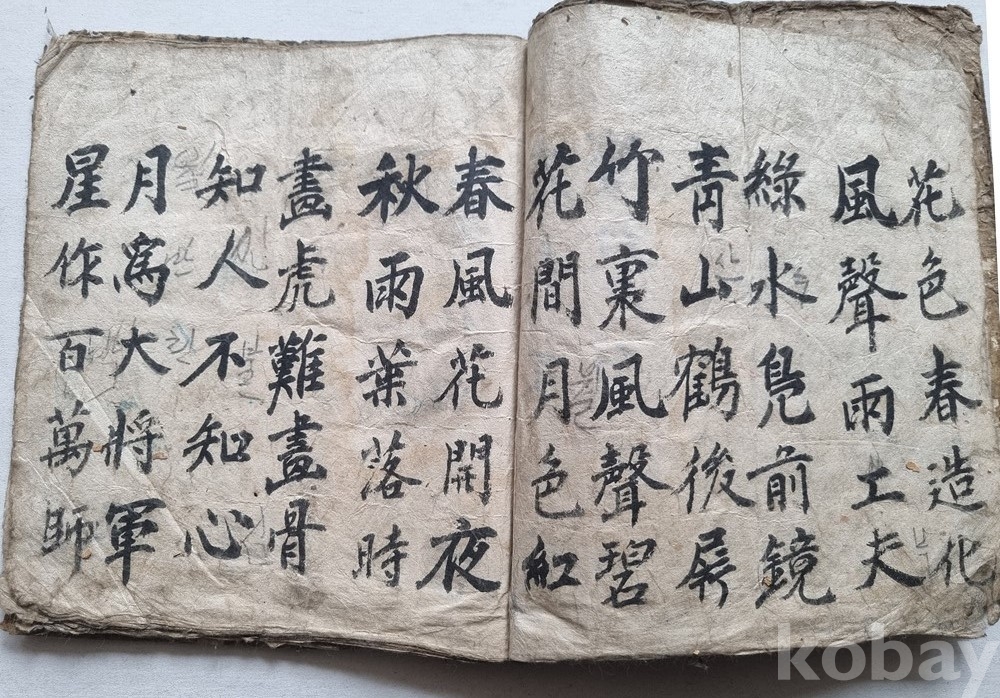 花色春造化
風聲雨工夫
綠水鳧前鏡
青山鶴後屛
竹裏風聲碧
花間月色紅
春風花開夜
秋雨葉落時
畫虎難畫骨
知人不知心
月爲大将軍
星作百萬師
kobay